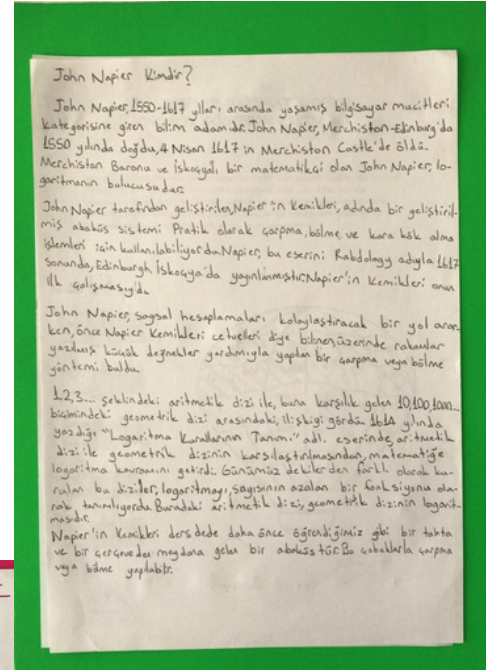 John Napier Kimdir?
John Napier, 1550-1617 yılları arasında yaşamış bilgisayar mucitleri
kategorisine giren bilim adamıdır. John Napier, Merchiston-Edinburg'da
1550 yılında doğdu, 4 Nisan 1617 in Merchiston Castle'de öldü.
Merchiston Baronu ve İskoçyalı bir matematikçi olan John Napier, lo-
garitmanın bulucusudur.
John Napier tarafından geliştirilen, Napier'in Kemikleri, adında bir geliştiril-
miş abaküs sistemi Pratik olarak çarpma, bölme ve kara kök alma
işlemleri için kullanılabiliyordu. Napier, bu eserini Rabdology adıyla 1617
sonunda, Edinburgh, İskoçya'da yayınlanmıştır. Napier'in Kemikleri onun
ilk çalışmasıydı.
John Napier, sayısal hesaplamaları kolaylaştıracak bir yol arar-
ken, önce Napier Kemikleri cetvelleri diye bilinen, üzerinde rakamlar
yazılmış küçük değnekler yardımıyla yapılan bir çarpma veya bölme
yöntemi buldu.
1,2,3... şeklindeki aritmetik dizi ile, buna karşılık gelen 10,100,1000...
biçimindeki geometrik dizi arasındaki, ilişkiyi gördü. 1614 yılında
yazdığı "Logaritma Kurallarının Tanımı" adlı eserinde, aritmetik
dizi ile geometrik dizinin karşılaştırılmasından, matematiğe
logaritma kavramını getirdi. Günümüzdekilerden farklı olarak ku-
rulan bu diziler, logaritmayı, sayısının azalan bir fonksiyonu ola-
rak tanımlıyordu. Buradaki aritmetik dizi, geometrik dizinin logarit-
masıdır.
Napier'in Kemikleri dersdede daha önce öğrendiğimiz gibi bir tahta
ve bir çerçeveden meydana gelen bir abaküstür. Bu çubuklarla çarpma
veya bölme yapılabilir.